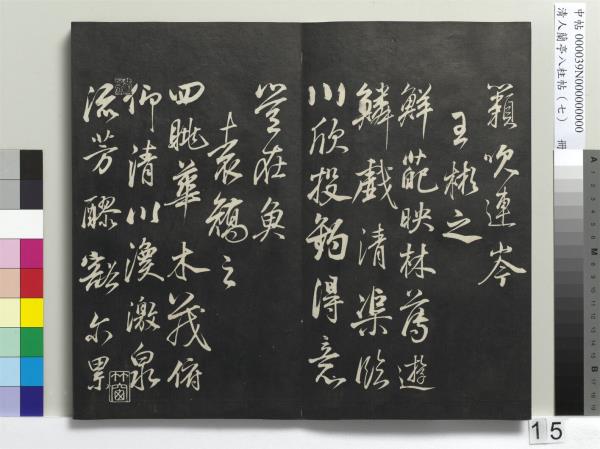 中帖 000039N000000000
清人蘭亭八柱帖（七） 冊
籟吹連岑
王彬之
鮮葩映林薄遊
鱗戲清渠臨
川欣投釣得意
豈在魚
袁矯之
四眺華木茂俯
仰清川渙激泉
流芳醪豁尒累
竹窗
15